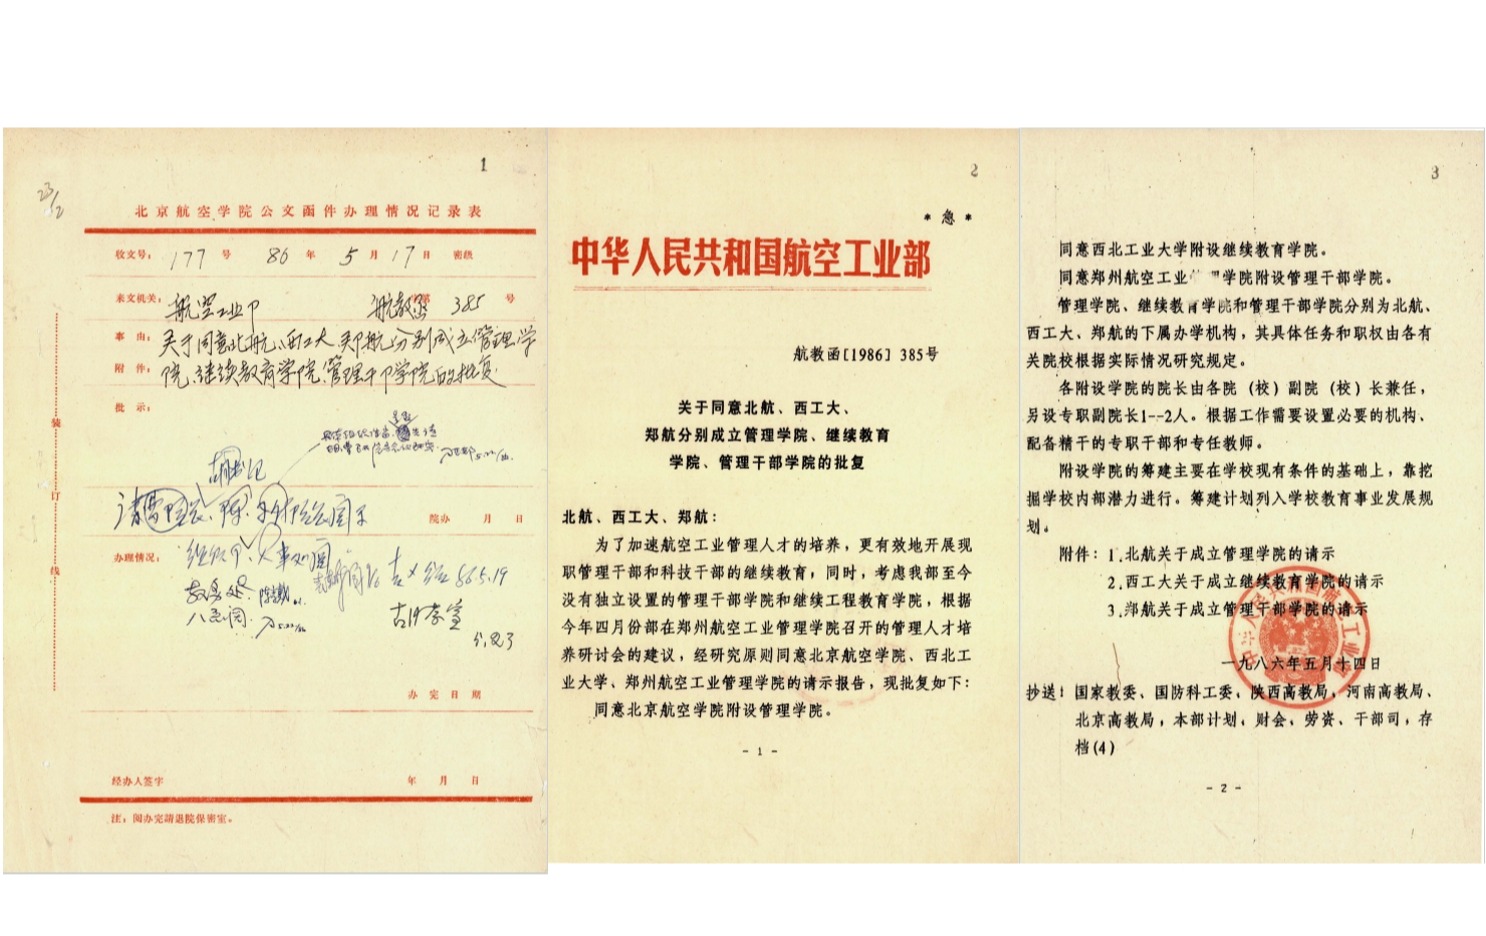 1
23/2
北京航空学院公文函件办理情况记录表
收文号：177号 86年5月17日 密级
来文机关：航空工业部 航教函第385号
事由：关于同意北航、西工大、郑航分别成立管理学
附件：院、继续教育学院、管理干部学院的批复
批示：
胡书记
院办 月 日
办理情况：
教务处
86.5.19
办完日期
经办人签字 年 月 日
注：阅办完请退院保密室。
装
订
线
2
*急*
中华人民共和国航空工业部
航教函[1986] 385号
关于同意北航、西工大、
郑航分别成立管理学院、继续教育
学院、管理干部学院的批复
北航、西工大、郑航：
为了加速航空工业管理人才的培养，更有效地开展现
职管理干部和科技干部的继续教育，同时，考虑我部至今
没有独立设置的管理干部学院和继续工程教育学院，根据
今年四月份部在郑州航空工业管理学院召开的管理人才培
养研讨会的建议，经研究原则同意北京航空学院、西北工
业大学、郑州航空工业管理学院的请示报告，现批复如下：
同意北京航空学院附设管理学院。
- 1 -
3
同意西北工业大学附设继续教育学院。
同意郑州航空工业管理学院附设管理干部学院。
管理学院、继续教育学院和管理干部学院分别为北航、
西工大、郑航的下属办学机构，其具体任务和职权由各有
关院校根据实际情况研究规定。
各附设学院的院长由各院（校）副院（校）长兼任，
另设专职副院长1--2人。根据工作需要设置必要的机构、
配备精干的专职干部和专任教师。
附设学院的筹建主要在学校现有条件的基础上，靠挖
掘学校内部潜力进行。筹建计划列入学校教育事业发展规
划。
附件：1.北航关于成立管理学院的请示
2.西工大关于成立继续教育学院的请示
3.郑航关于成立管理干部学院的请示
中华人民共和国航空工业部
一九八六年五月十四日
抄送：国家教委、国防科工委，陕西高教局，河南高教局、
北京高教局，本部计划，财会，劳资、干部司，存
档(4)
- 2 -